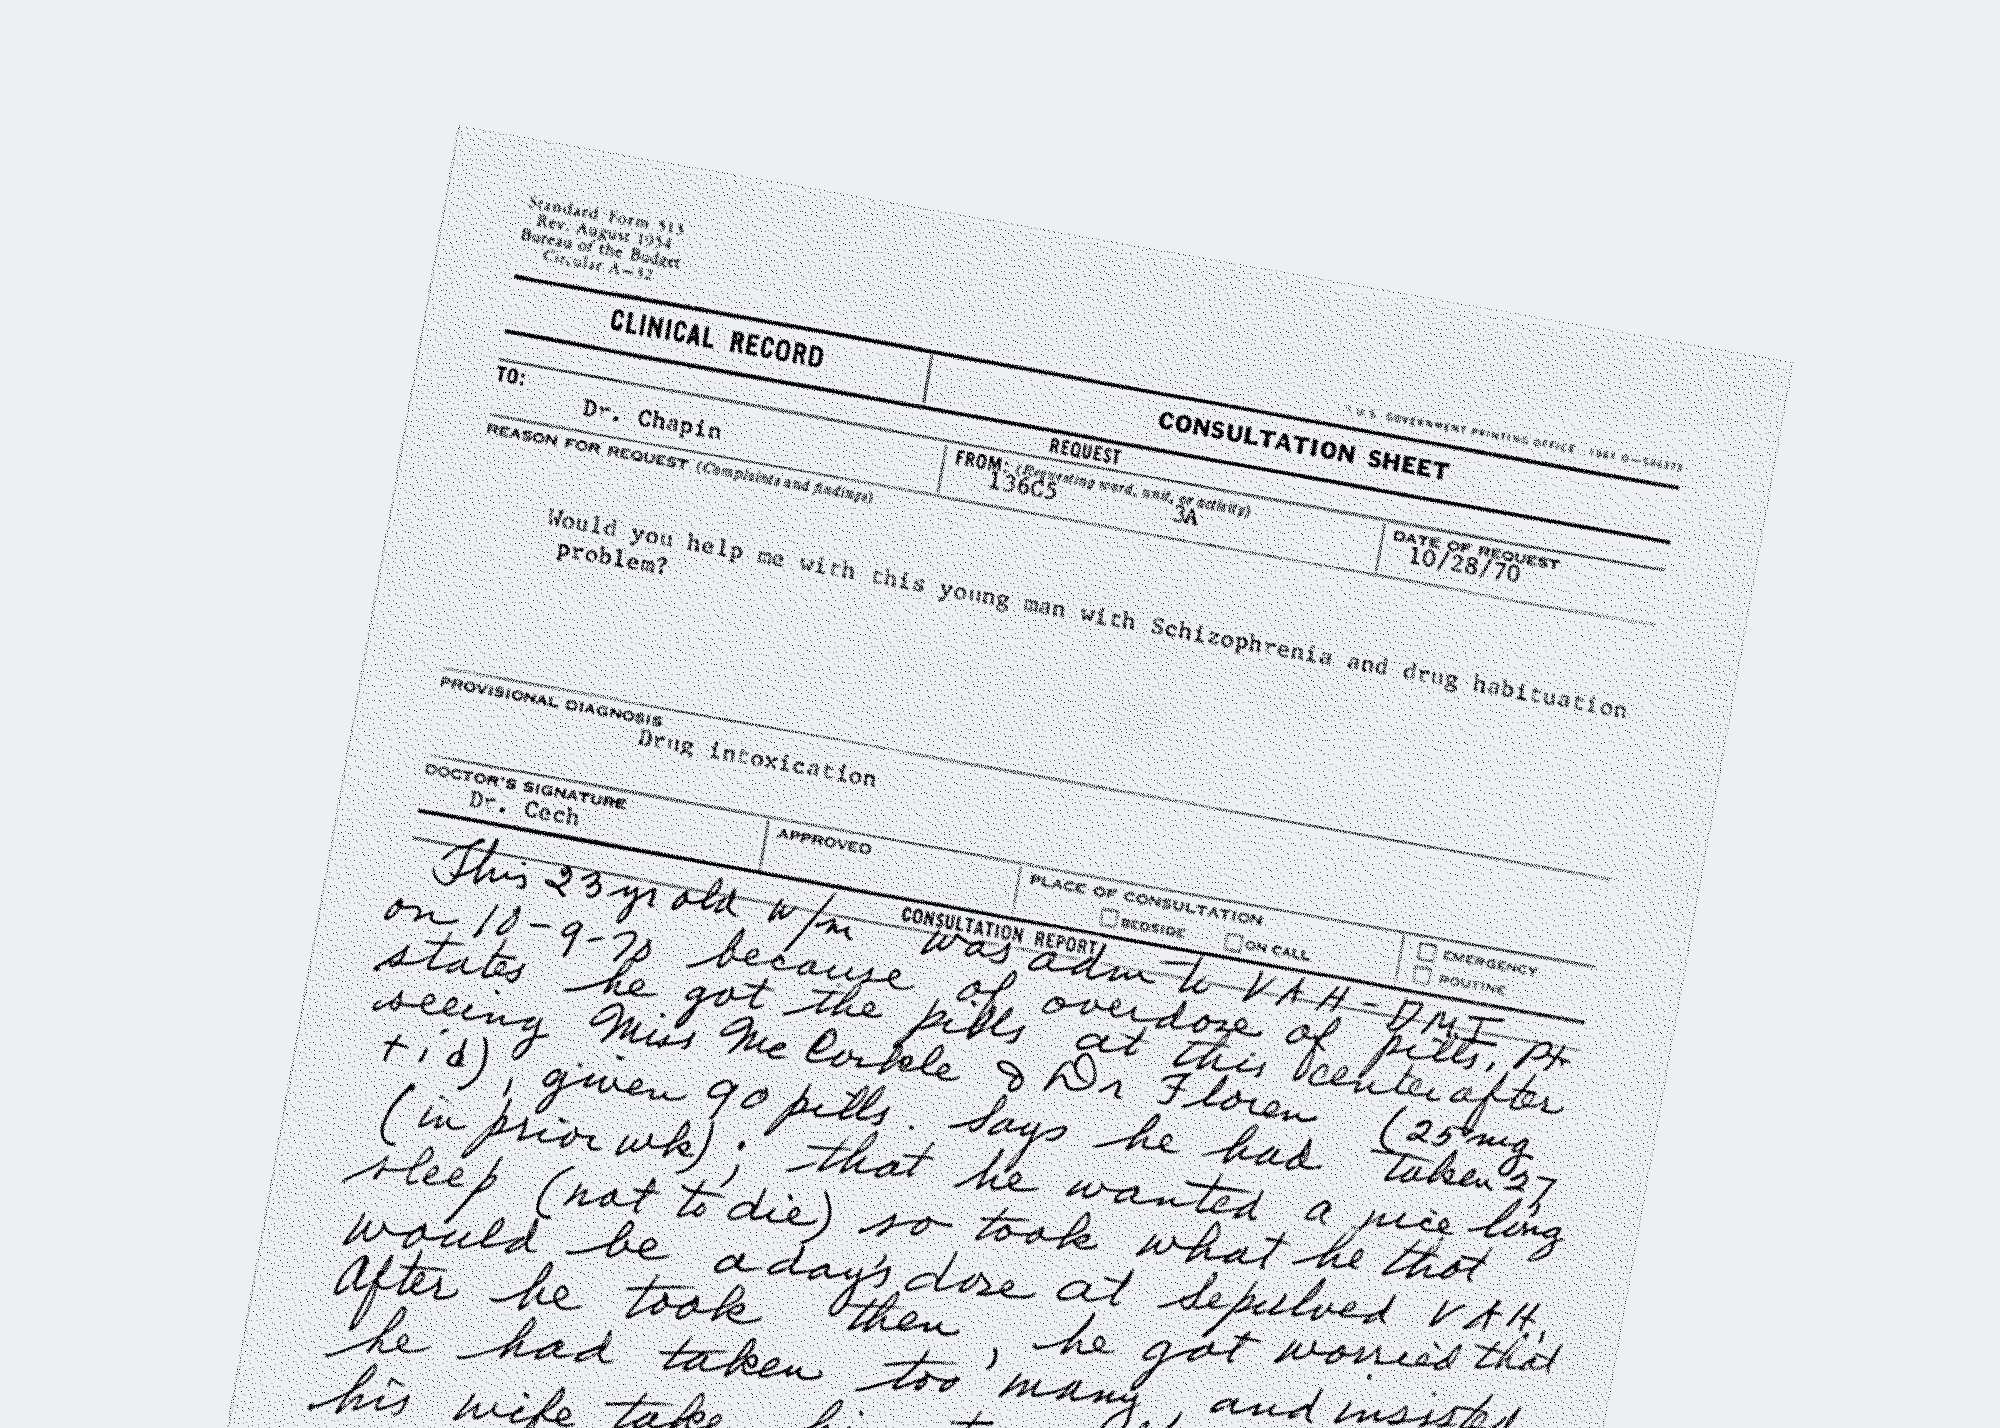 Standard Form 513
Rev. August 1954
Bureau of the Budget
Circular A—32
U.S. GOVERNMENT PRINTING OFFICE
CLINICAL RECORD
CONSULTATION SHEET
REQUEST
TO:
Dr. Chapin
FROM: (Requesting ward, unit, or activity)
136G5 3A
DATE OF REQUEST
10/28/70
REASON FOR REQUEST (Complaints and findings)
Would you help me with this young man with Schizophrenia and drug habituation
problem?
PROVISIONAL DIAGNOSIS
Drug intoxication
DOCTOR'S SIGNATURE
Dr. Cech
APPROVED
PLACE OF CONSULTATION
BEDSIDE ON CALL
EMERGENCY
ROUTINE
CONSULTATION REPORT
This 23 yr old w/m was adm to VAH-DMI
on 10-9-70 because of overdose of pills. Pt
states he got the pills at this center after
seeing Miss McCorkle & Dr Floren (25 mg
t.i.d), given 90 pills. Says he had taken 27
(in prior wk); that he wanted a nice long
sleep (not to die) so took what he thot
would be a day's dose at Sepulved VAH.
After he took then, he got worried that
he had taken too many and insisted
his wife take